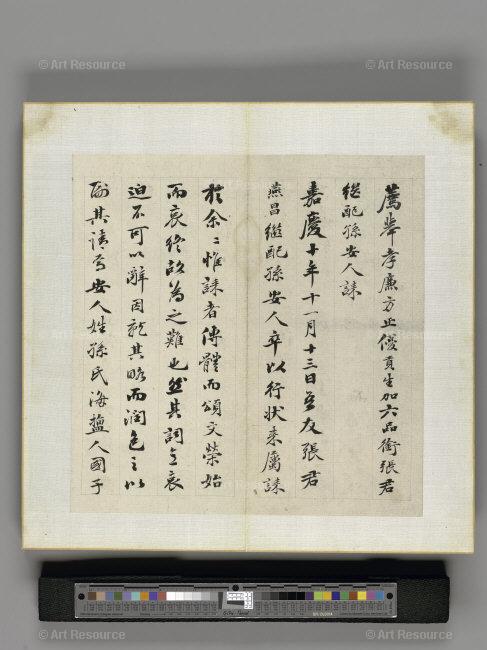 © Art Resource
© Art Resource
薦舉孝廉方正優貢生加六品銜張君
繼配孫安人誄
嘉慶十年十一月十三日友張君
燕昌繼配孫安人卒以行狀來屬誄
於余〻惟誄者傳體而頌文榮始
而哀終故為之難也然其詞哀
迫不可以辭因就其略而潤色之以
副其請焉安人姓孫氏海鹽人國子
© Art Resource
© Art Resource